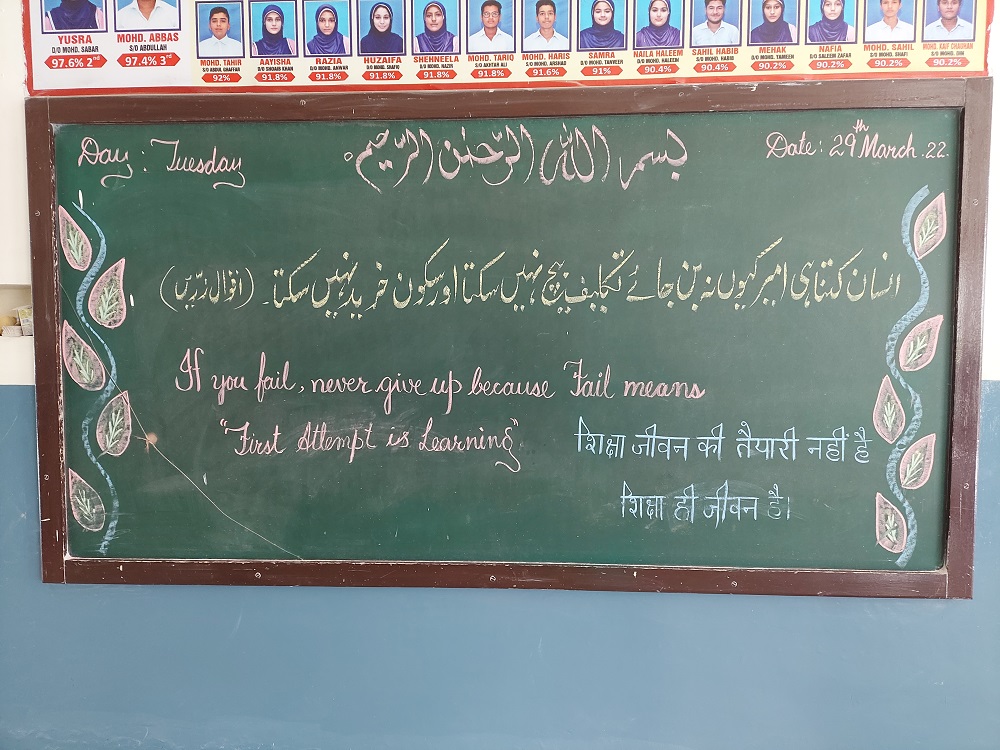 YUSRA
D/O MOHD. SABAR
97.6% 2nd
MOHD. ABBAS
S/O ABDULLAH
97.4% 3rd
MOHD. TAHIR
S/O ABDUL GHAFFAR
92%
AAYISHA
D/O SHOAIB KHAN
91.8%
RAZIA
D/O MOHD. ANWAR
91.8%
HUZAIFA
D/O MOHD. SHAFIQ
91.8%
SHEHNEELA
D/O MOHD. NAZIR
91.8%
MOHD. TARIQ
S/O AKHTAR ALI
91.8%
MOHD. HARIS
S/O MOHD. ARSHAD
91.6%
SAMRA
D/O MOHD. TANVEER
91%
NAILA HALEEM
D/O MOHD. HALEEM
90.4%
SAHIL HABIB
S/O MOHD. HABIB
90.4%
MEHAK
D/O MOHD. TAMEEN
90.2%
NAFIA
D/O SALEEM ZAFAR
90.2%
MOHD. SAHIL
S/O MOHD. SHAFI
90.2%
MOHD. KAIF CHAUHAN
S/O MOHD. DIN
90.2%
Day : Tuesday
بسم اللہ الرحمٰن الرحیم
Date: 29th March. 22.
انسان کتنا ہی امیر کیوں نہ بن جائے تکلیف بیچ نہیں سکتا اور سکون خرید نہیں سکتا۔ (اقوال زرّیں)
If you fail, never give up because Fail means
"First Attempt is Learning"
शिक्षा जीवन की तैयारी नहीं है
शिक्षा ही जीवन है।